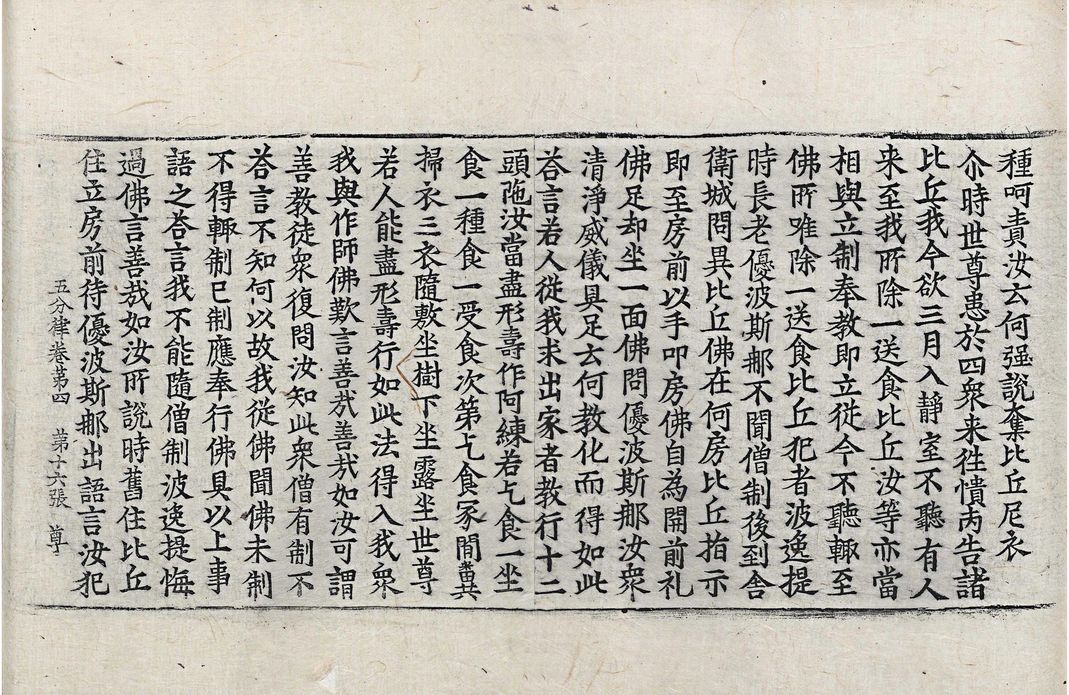 種呵責汝云何强說奪比丘尼衣
尒時世尊患於四衆来徃憒丙告諸
比丘我今欲三月入靜室不聽有人
来至我所除一送食比丘汝等亦當
相與立制奉教即立從今不聽輙至
佛所唯除一送食比丘犯者波逸提
時長老優波斯那不聞僧制後到舍
衛城問異比丘佛在何房比丘指示
即至房前以手叩房佛自為開前礼
佛足却坐一面佛問優波斯那汝衆
清淨威儀具足云何教化而得如此
荅言若人從我求出家者教行十二
頭陁汝當盡形壽作阿練若乞食一坐
食一種食一受食次第乞食冢閒糞
掃衣三衣隨敷坐樹下坐露坐世尊
若人能盡形壽行如此法得入我衆
我與作師佛歎言善㢤善㢤如汝可謂
善教徒衆復問汝知此衆僧有制不
荅言不知何以故我從佛聞佛未制
不得輙制已制應奉行佛具以上事
語之荅言我不能隨僧制波逸提悔
過佛言善㢤如汝所說時舊住比丘
住立房前待優波斯那出語言汝犯
五分律卷第四 第十六張 尊